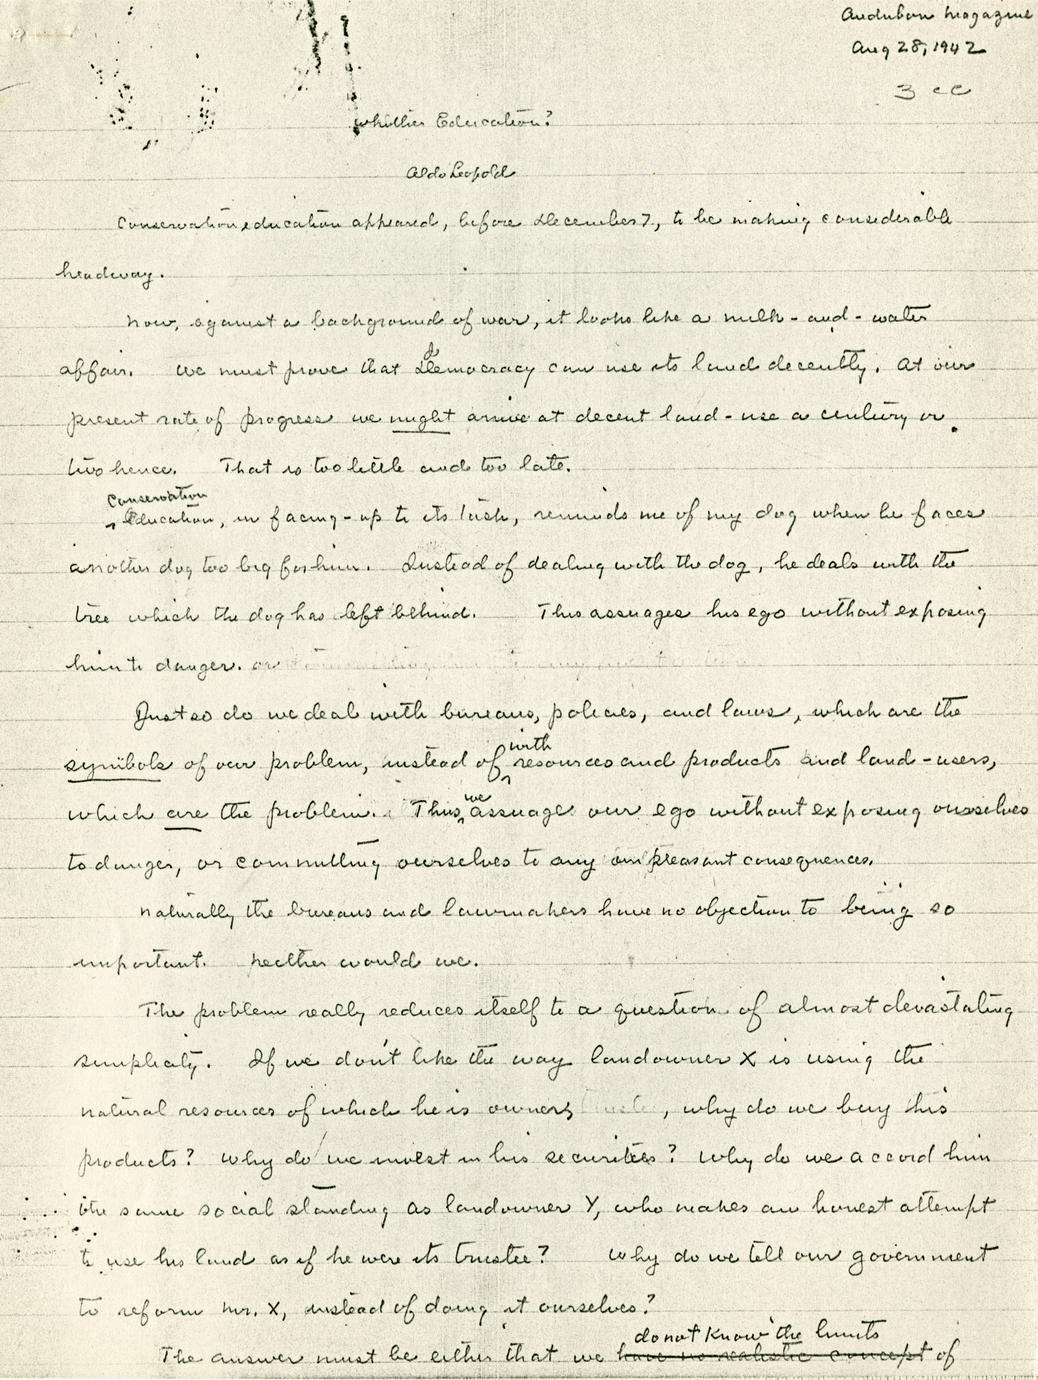 Audubon Magazine
Aug 28, 1942
3 cc
Whither Education?
Aldo Leopold
Conservation education appeared, before December 7, to be making considerable
headway.
Now, against a background of war, it looks like a milk-and-water
affair. We must prove that democracy can use its land decently. At our
present rate of progress we might arrive at decent land-use a century or
two hence. That is too little and too late.
Conservation
Education, in facing-up to its task, reminds me of my dog when he faces
another dog too big for him. Instead of dealing with the dog, he deals with the
tree which the dog has left behind. This assuages his ego without exposing
him to danger. or
Just so do we deal with bureaus, policies, and laws, which are the
with
symbols of our problem, instead of resources and products and land-users,
we
which are the problem. Thus assuage our ego without exposing ourselves
to danger, or committing ourselves to any unpleasant consequences.
Naturally the bureaus and lawmakers have no objection to being so
important. Neither would we.
The problem really reduces itself to a question of almost devastating
simplicity. If we don't like the way landowner X is using the
natural resources of which he is owner, why do we buy his
products? Why do we invest in his securities? Why do we accord him
the same social standing as landowner Y, who makes an honest attempt
to use his land as if he were its trustee? Why do we tell our government
to reform Mr. X, instead of doing it ourselves?
do not know the limits
The answer must be either that we have no realistic concept of